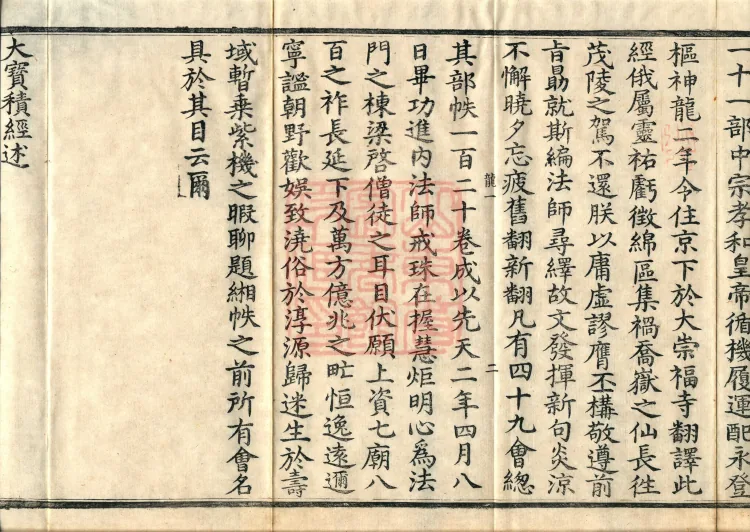 一十一部中宗孝和皇帝循機履運配永登
樞神龍二年令住京下於大崇福寺翻譯此
經俄屬靈祐虧徵綿區集禍喬嶽之仙長徃
茂陵之駕不還朕以庸虛謬膺丕構敬遵前
旨勗就斯編法師尋繹故文發揮新句炎涼
不懈曉夕忘疲舊翻新翻凡有四十九會總
龍一 二
其部帙一百二十卷成以先天二年四月八
日畢功進內法師戒珠在握慧炬明心爲法
門之棟梁啓僧徒之耳目伏願上資七廟八
百之祚長延下及萬方億兆之甿恒逸遠邇
寧謐朝野歡娛致澆俗於淳源歸迷生於壽
域暫乗紫機之暇聊題緗帙之前所有會名
具於其目云爾
大寶積經述